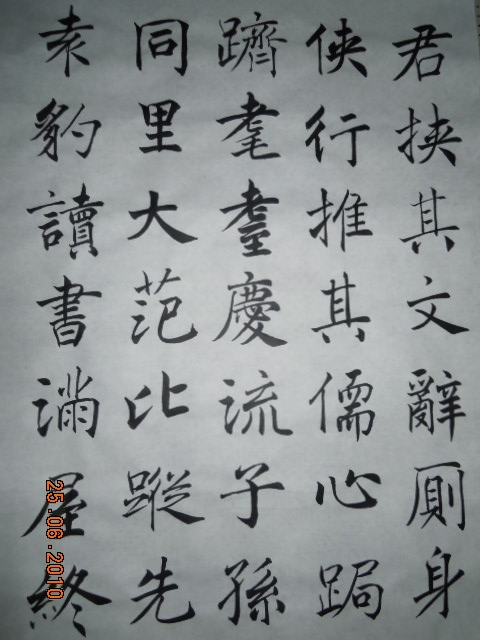 君挾其文辭厠身
俠行推其儒心跼
躋耄耋慶流子孫
同里大范比蹤先
袁豹讀書滿屋終
25.06.2010